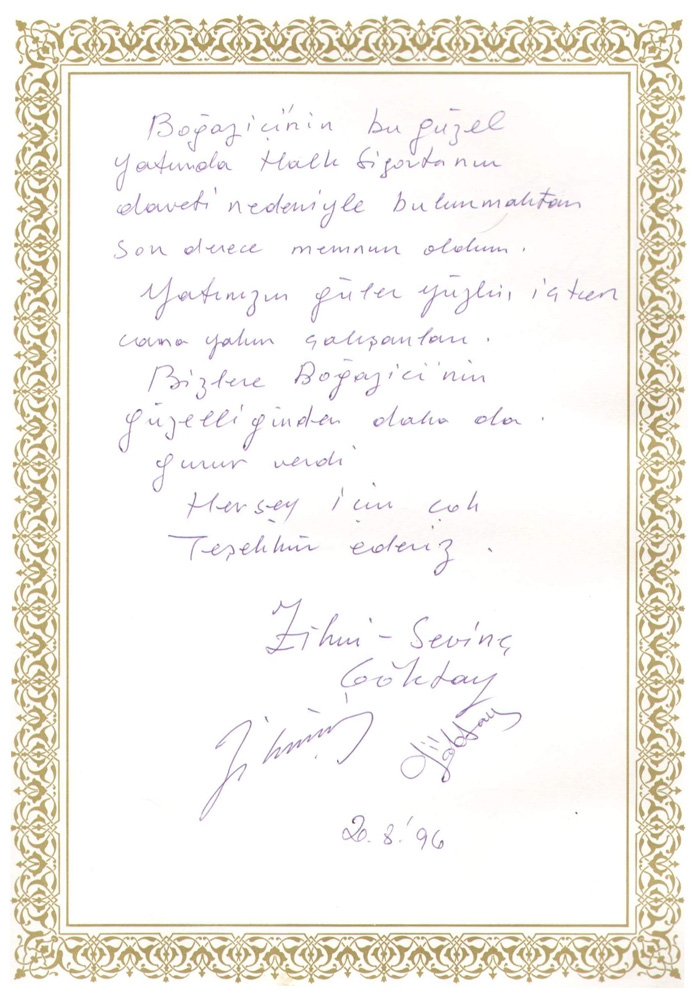 Boğaziçi'nin bu güzel
yatında Halk Sigortanın
daveti nedeniyle bulunmaktan
son derece memnun oldum.
Yatınızın güler yüzlü, içten
cana yakın çalışanları.
Bizlere Boğaziçi'nin
güzelliğinden daha da.
gurur verdi
Herşey için çok
Teşekkür ederiz.
Zihni - Sevinç
Göktay
Göktay
20.8.'96